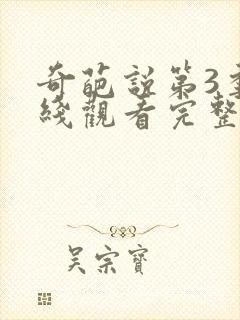 奇葩説第3
綫觀看完整
吴宗寶